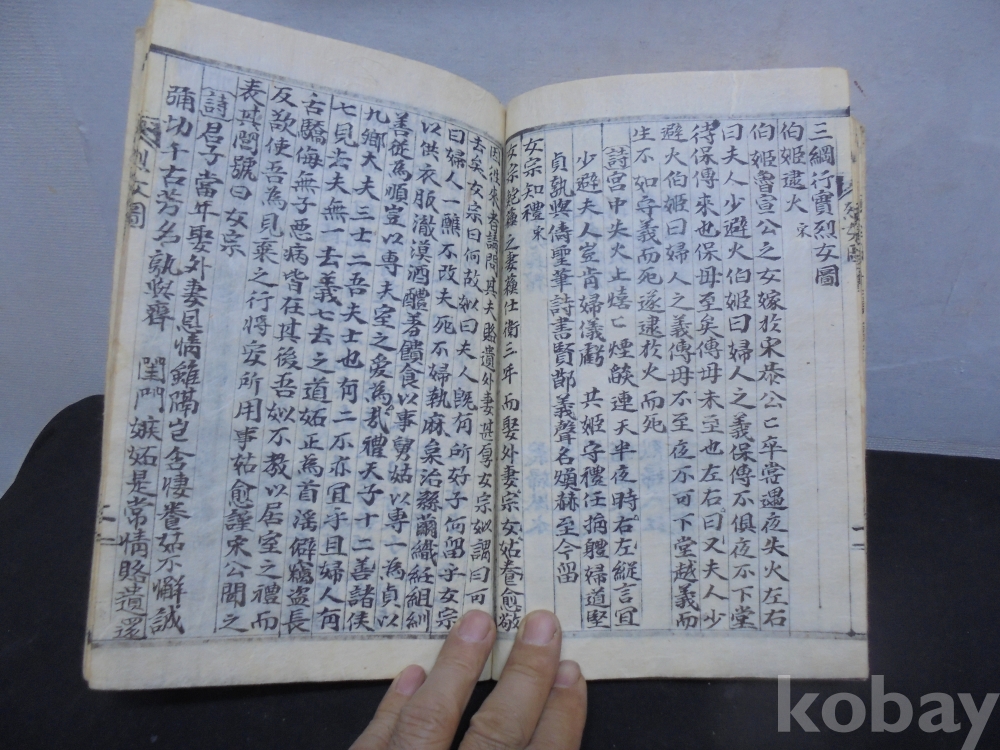 三綱行實烈女圖
伯姬逮火 宋
伯姬魯宣公之女嫁於宋恭公〻卒嘗遇夜失火左右
曰夫人少避火伯姬曰婦人之義保傅不俱夜不下堂
待保傅來也保母至矣傅母未至也左右曰又夫人少
避火伯姬曰婦人之義傅母不至夜不可下堂越義而
生不如守義而死遂逮於火而死
詩宮中失火上熺〻煙燄連天半夜時右左縱言冝
少避夫人豈肯婦儀虧 共姬守禮任捐軆婦道堅
貞孰與儔聖筆詩書賢鄰義聲名頫赫至今留
女宗知禮 宋
女宗鮑蘓之妻蘓仕衛三年而娶外妻宗女姑養愈敬
因徃來者請問其夫賂遺外妻甚厚女宗姒謂曰可
去矣女宗曰何故姒曰夫人旣有所好子何留乎女宗
曰婦人一醮不改夫死不婦執麻枲治絲繭織紝組紃
以供衣服澈漠酒醴羞饋食以事舅姑以專一為貞以
善從為順豈以專夫室之愛為乱禮天子十二善諸侯
九鄉大夫三士二吾夫士也有二不亦冝乎且婦人有
七見去夫無一去義七去之道妬正為首滛僻竊盜長
舌驕侮無子悪病皆在其後吾姒不教以居室之禮而
反欲使吾為見棄之行將安所用事姑愈謹宋公聞之
表其閭號曰女宗
詩君子當年娶外妻恩情雖隔豈含悽養姑不懈誠
彌切千古芳名孰與齊 閨門嫉妬是常情賂遺還
烈女圖
二
一
kobay